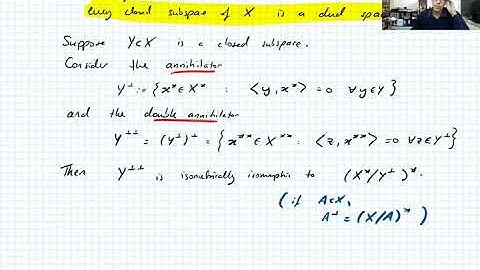 every closed subspace of X is a dual spa
Suppose Y⊂X is a closed subspace.
Consider the annihilator
Y^⊥ := { x* ∈ X* : <y, x*> = 0 ∀ y ∈ Y }
and the double annihilator
Y^⊥⊥ = (Y^⊥)^⊥ = { x** ∈ X** : <z, x**> = 0 ∀ z ∈ Y^⊥ }
Then Y^⊥⊥ is isometrically isomorphic to (X*/Y^⊥)*.
( if A⊂X,
A^⊥ = (X/A)* )